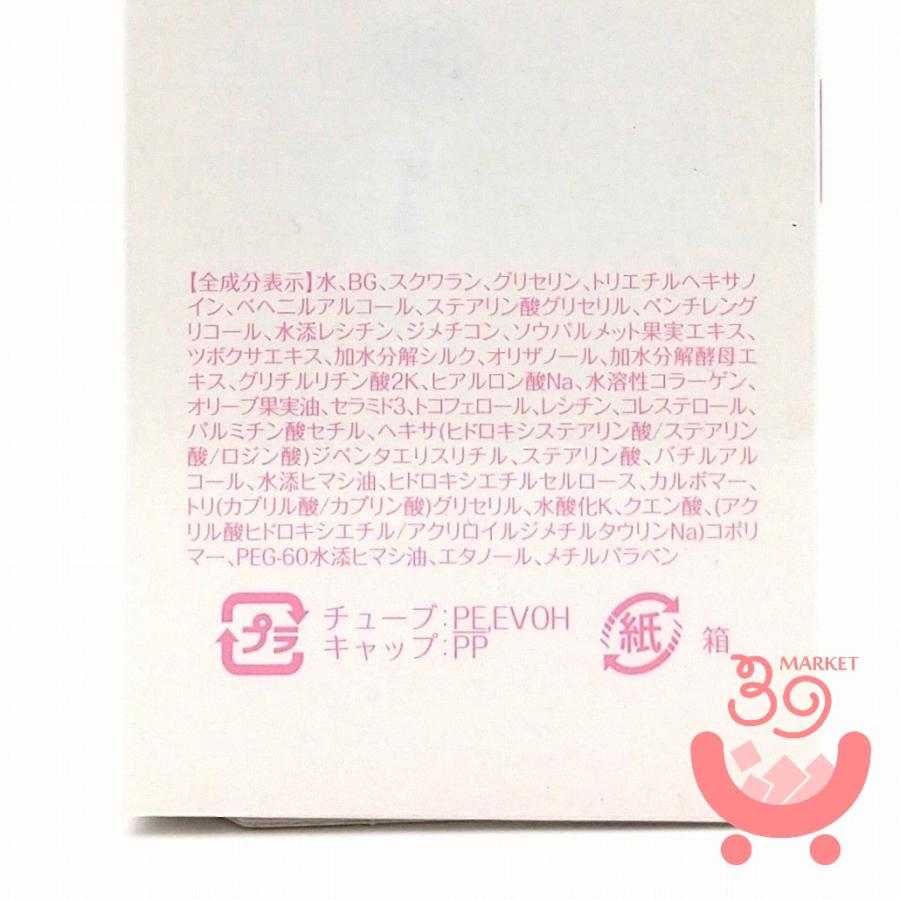 【全成分表示】水、BG、スクワラン、グリセリン、トリエチルヘキサノ
イン、ベヘニルアルコール、ステアリン酸グリセリル、ペンチレング
リコール、水添レシチン、ジメチコン、ソウパルメット果実エキス、
ツボクサエキス、加水分解シルク、オリザノール、加水分解酵母エ
キス、グリチルリチン酸2K、ヒアルロン酸Na、水溶性コラーゲン、
オリーブ果実油、セラミド3、トコフェロール、レシチン、コレステロール、
パルミチン酸セチル、ヘキサ(ヒドロキシステアリン酸/ステアリン
酸/ロジン酸)ジペンタエリスリチル、ステアリン酸、バチルアル
コール、水添ヒマシ油、ヒドロキシエチルセルロース、カルボマー、
トリ(カプリル酸/カプリン酸)グリセリル、水酸化K、クエン酸、(アク
リル酸ヒドロキシエチル/アクリロイルジメチルタウリンNa)コポリ
マー、PEG-60水添ヒマシ油、エタノール、メチルパラベン
プラ チューブ:PE,EVOH
キャップ:PP
紙 箱
39 MARKET